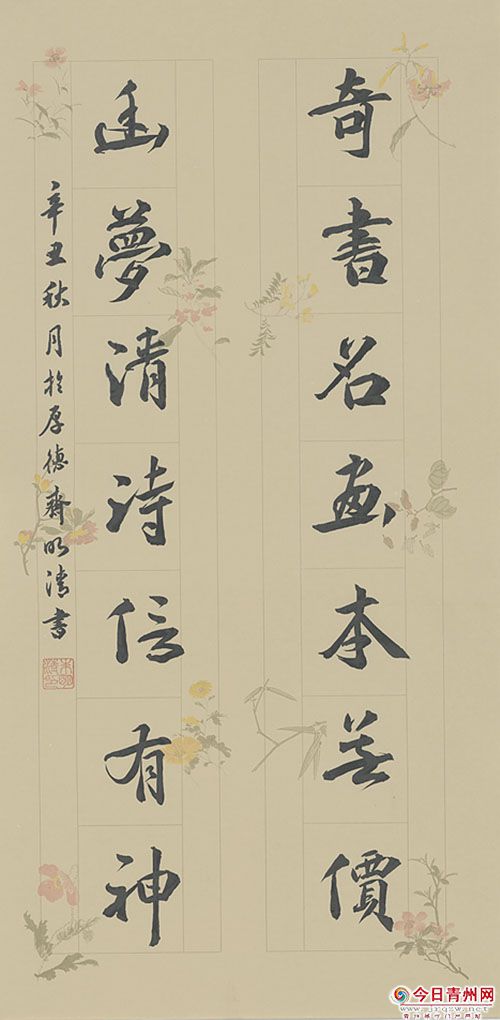 奇書名畫本無價
幽夢清詩信有神
辛丑秋月於厚德齋明清書
今日青州网
www.jrqzw.net